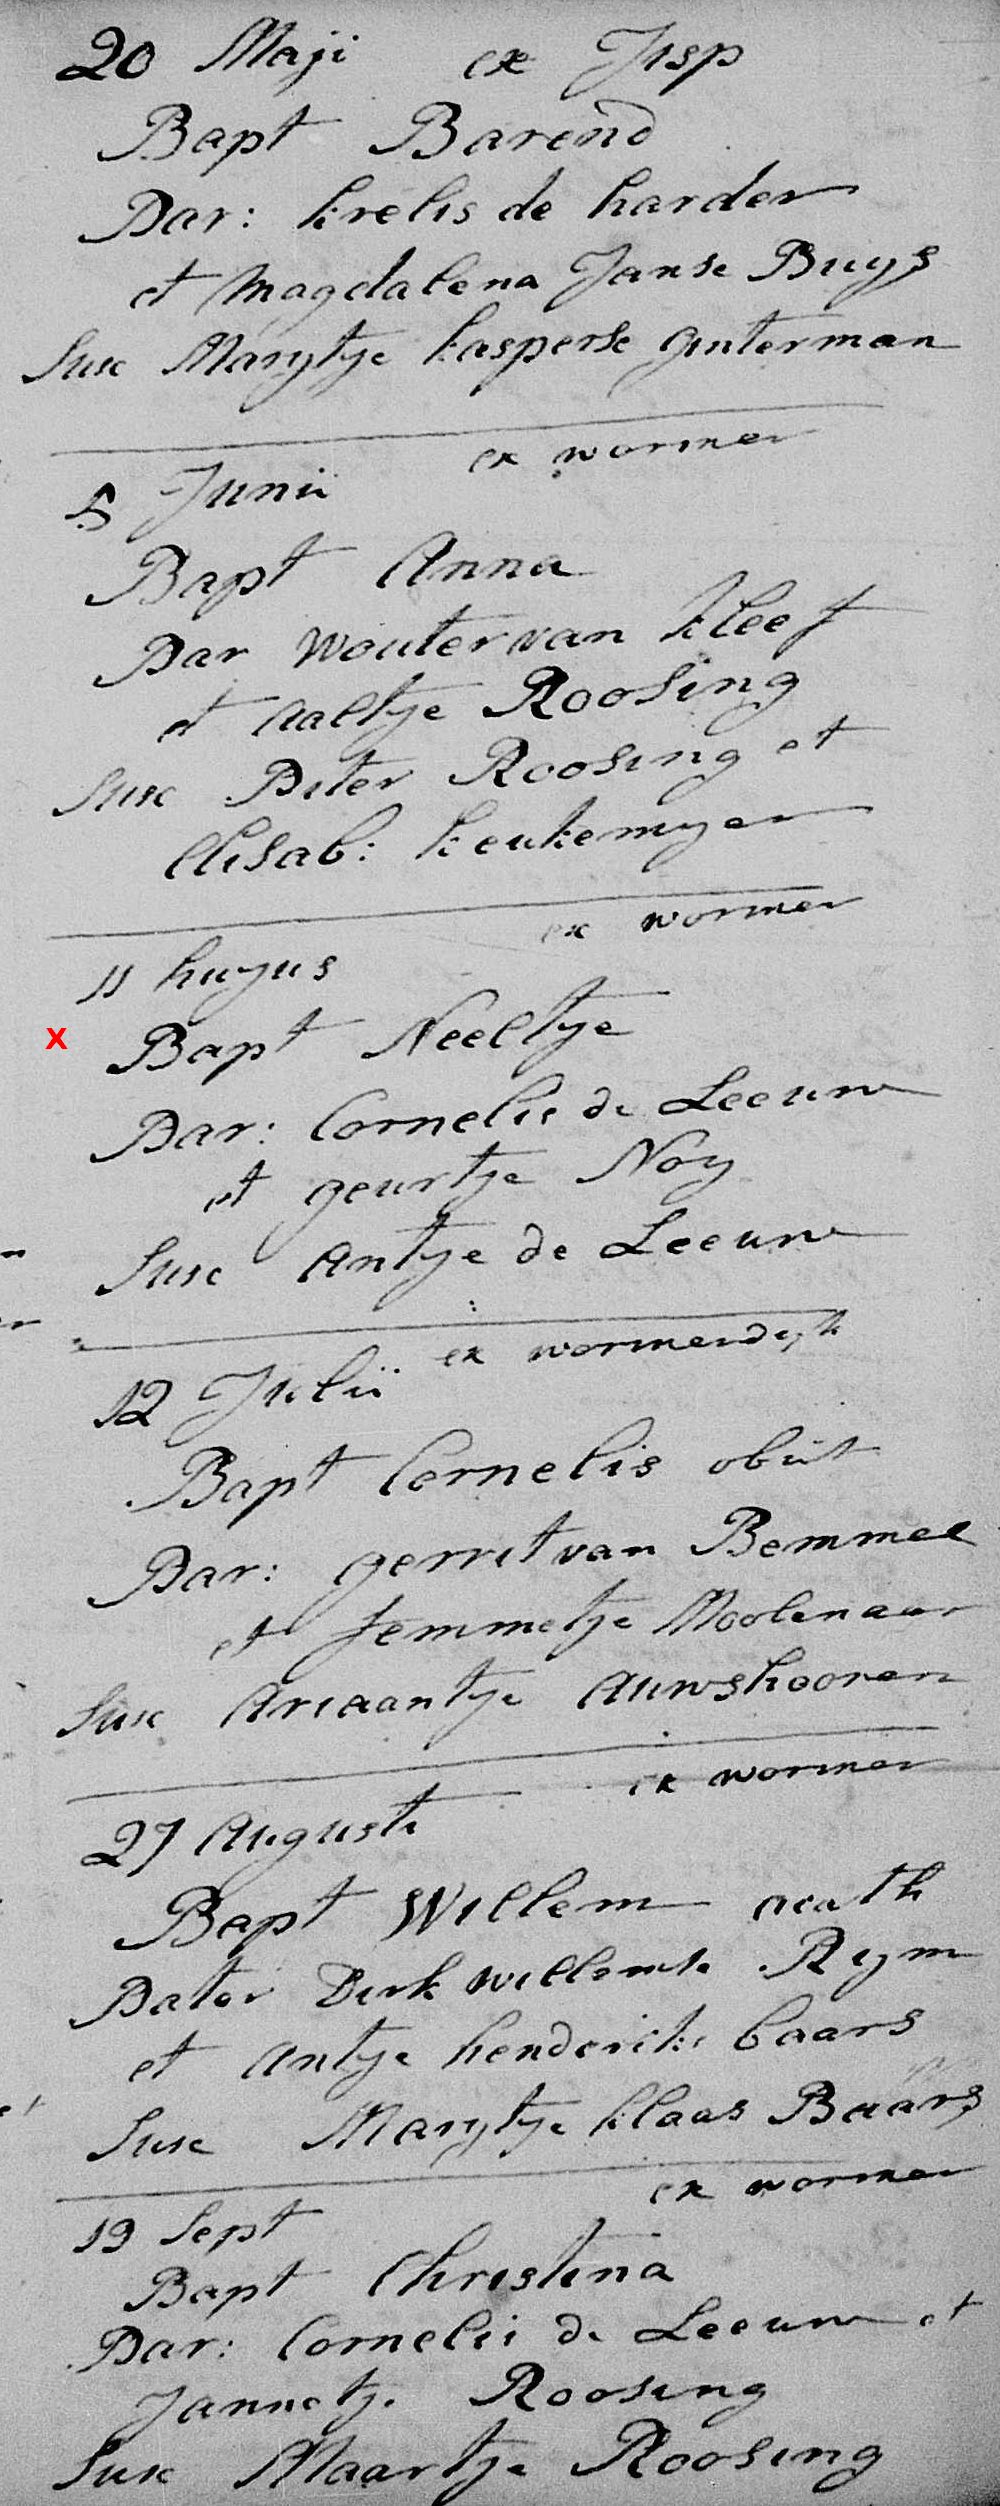 20 Maji ex Jisp
Bapt Barend
Par: krelis de harder
et Magdalena Janse Buys
Susc Marijtje kasperse Gunterman
ex wormer
5 Junii
Bapt Anna
Par wouter van kleef
et aaltje Roosing
Susc Piter Roosing et
Elisab: keukemyer
ex wormer
11 huyus
X Bapt Neeltje
Par: Cornelis de Leeuw
et geurtje Noy
Susc antje de Leeuw
ex wormerdijk
12 Julii
Bapt Cornelis obiit
Par: gerrit van Bemmel
et Jemmetje Moolenaar
Susc Ariaantje Auwshooren
ex wormer
27 Augusti
Bapt Willem
Pater Dirk willemse Rijm
et antje hendericks baars
Susc Marijtje klaas Baars
ex wormer
19 Sept
Bapt Christina
Par: Cornelis de Leeuw et
Jannetje Roosing
Susc Maartje Roosing